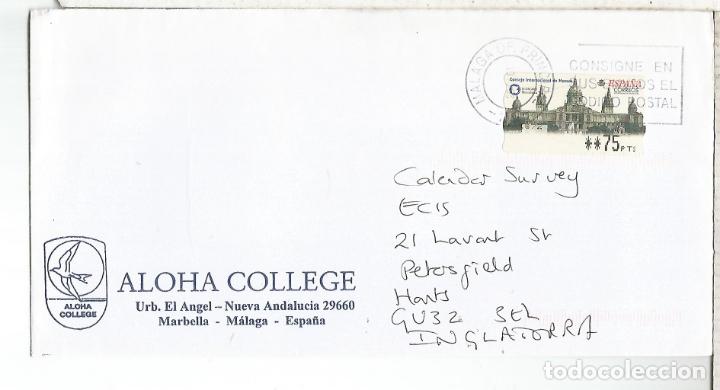 MALAGA
CONSIGNE EN
SUS ENVIOS EL
CODIGO POSTAL
Consejo Internacional de Museos
ESPAÑA
CORREOS
**75PTS
Calendar Survey
ECIS
21 Lavant St
Petersfield
Hants
GU32 3EL
INGLATORRA
ALOHA
COLLEGE
ALOHA COLLEGE
Urb. El Angel – Nueva Andalucia 29660
Marbella - Málaga - España
todocoleccion
todocoleccion.net